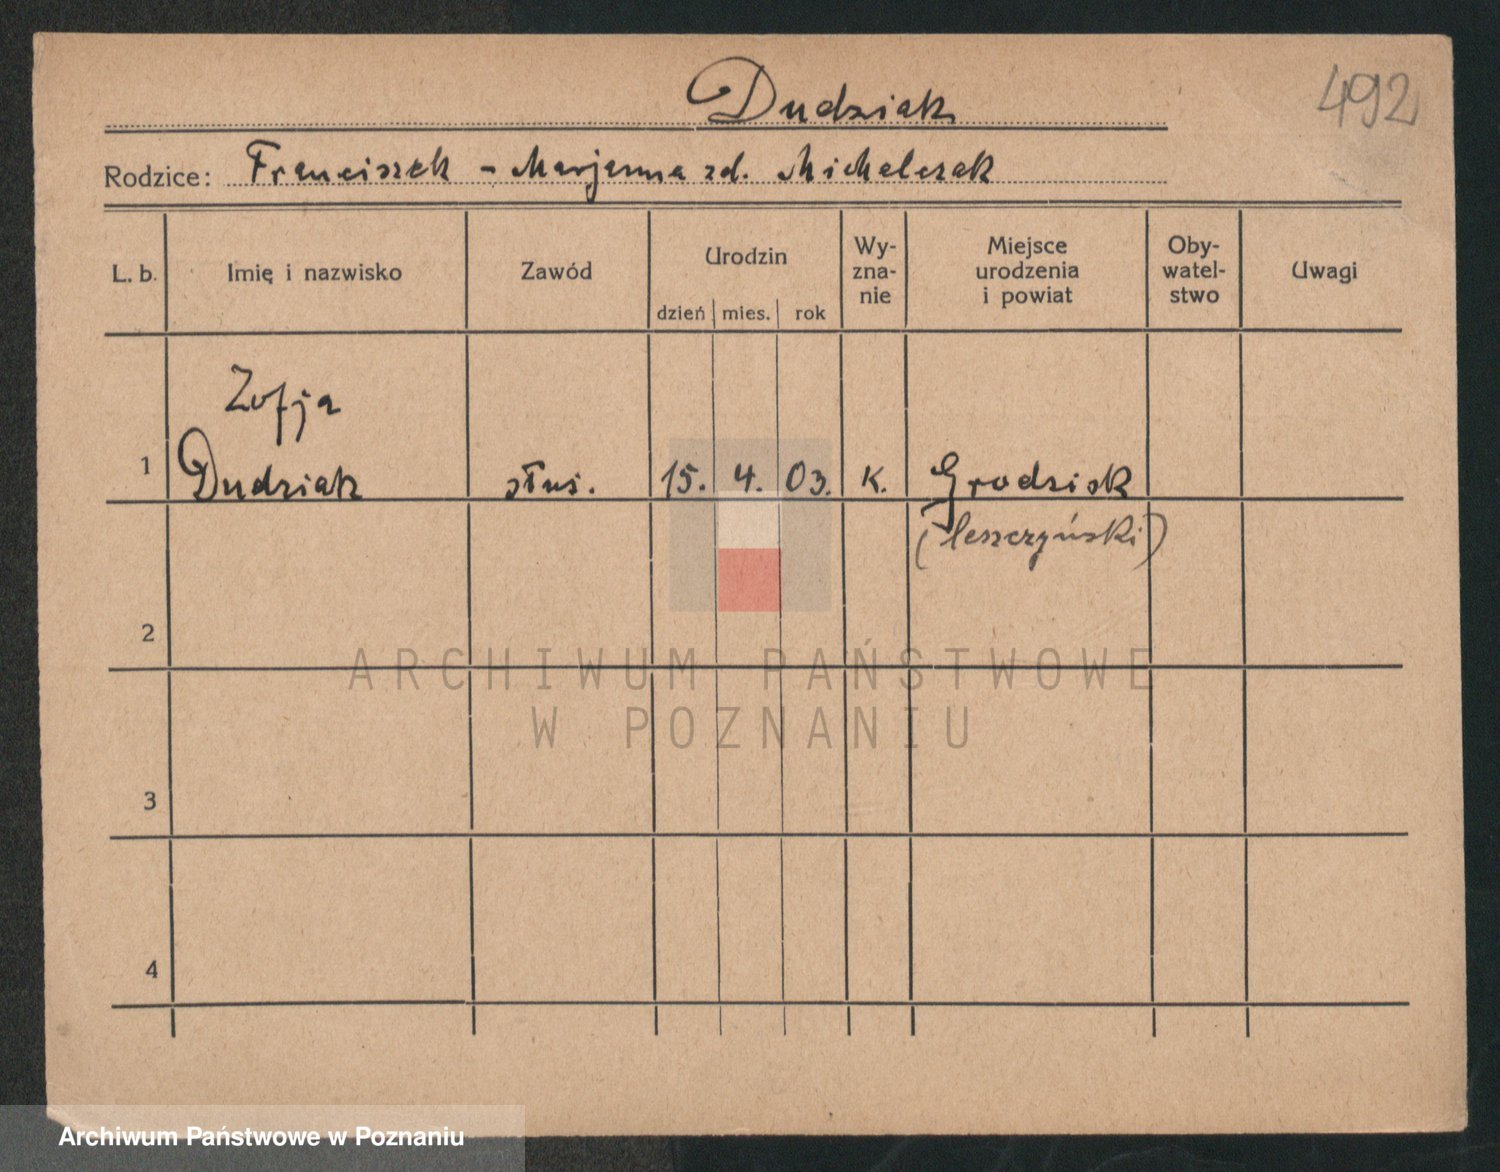 492
Dudziak
Rodzice: Franciszek - Marjanna zd. Michalczak
L. b. Imię i nazwisko Zawód Urodzin dzień mies. rok Wy-zna-nie Miejsce urodzenia i powiat Oby-watel-stwo Uwagi
Zofja
1 Dudziak służ. 15. 4. 03. K. Grodzisk
(leszczyński)
2
ARCHIWUM PAŃSTWOWE
W POZNANIU
3
4
Archiwum Państwowe w Poznaniu